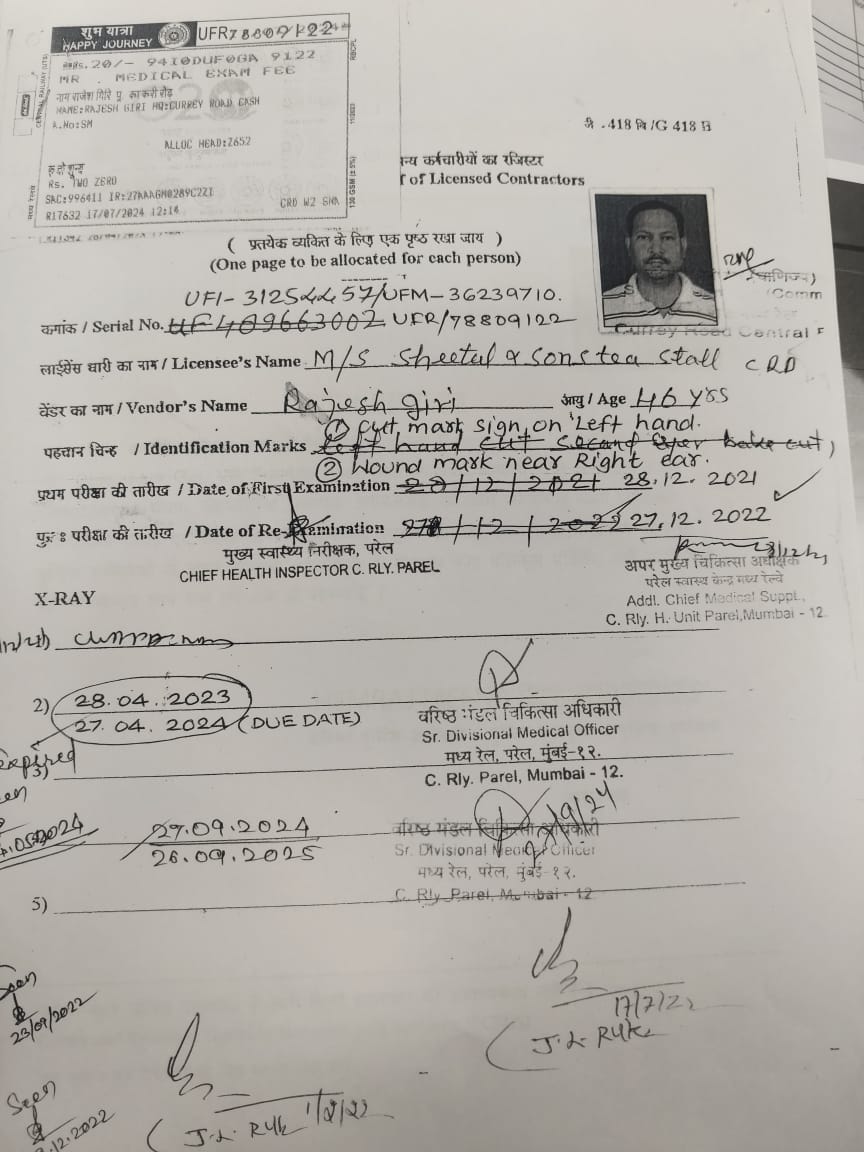 शुभ यात्रा
HAPPY JOURNEY
UFR78809122
Rs.20/- 9410DUF0GA 9122
MR . MEDICAL EXAM FEE
NAME:RAJESH GIRI HQ:CURREY ROAD CASH
A.No:SM
ALLOC HEAD:Z652
Rs. TWO ZERO
SAC:996411 IR:27AAAGM0289C2ZI
R17632 17/07/2024 12:14
CRD W2 SNA
CENTRAL RAILWAY (UTS)
मध्य रेलवे
150 GSM (± 5%)
जी . 418 बि /G 418 B
न्य कर्मचारीयों का रजिस्टर
of Licensed Contractors
( प्रत्येक व्यकित के लिए एक पृष्ठ रखा जाय )
(One page to be allocated for each person)
वाणिज्य)
Comm
Currey Road Central
UFI- 31254457/UFM-36239710.
कमांक / Serial No. UF409663002 UFR/78809122
लाईसेंस धारी का नाम / Licensee's Name M/S Sheetal & sons tea stall CRD
वेंडर का नाम / Vendor's Name Rajesh giri आयु / Age 46 yrs
① Cut mark sign on Left hand.
पहचान चिन्ह / Identification Marks Left hand cut second
② Wound mark near Right ear.
प्रथम परीक्षा की तारीख / Date of First Examination 28/12/2021 28.12.2021
पुनः परीक्षा की तारीख / Date of Re-Examination 27/12/2022 27.12.2022
मुख्य स्वास्थ्य निरीक्षक, परेल
CHIEF HEALTH INSPECTOR C. RLY. PAREL
अपर मुख्य चिकित्सा अधीक्षक
परेल स्वास्थ्य केन्द्र मध्य रेल्वे
Addl. Chief Medical Suppt.,
C. Rly. H. Unit Parel,Mumbai - 12.
X-RAY
2) 28.04.2023
27.04.2024 (DUE DATE)
वरिष्ठ मंडल चिकित्सा अधिकारी
Sr. Divisional Medical Officer
मध्य रेल, परेल, मुंबई-१२.
C. Rly. Parel, Mumbai - 12.
Expired
3)
27.09.2024
26.09.2025
वरिष्ठ मंडल चिकित्सा अधिकारी
Sr. Divisional Medical Officer
मध्य रेल, परेल, मुंबई-१२.
C. Rly Parel, Mumbai - 12
5)
Seen
23/09/2022
17/7/22
Seen
12.2022